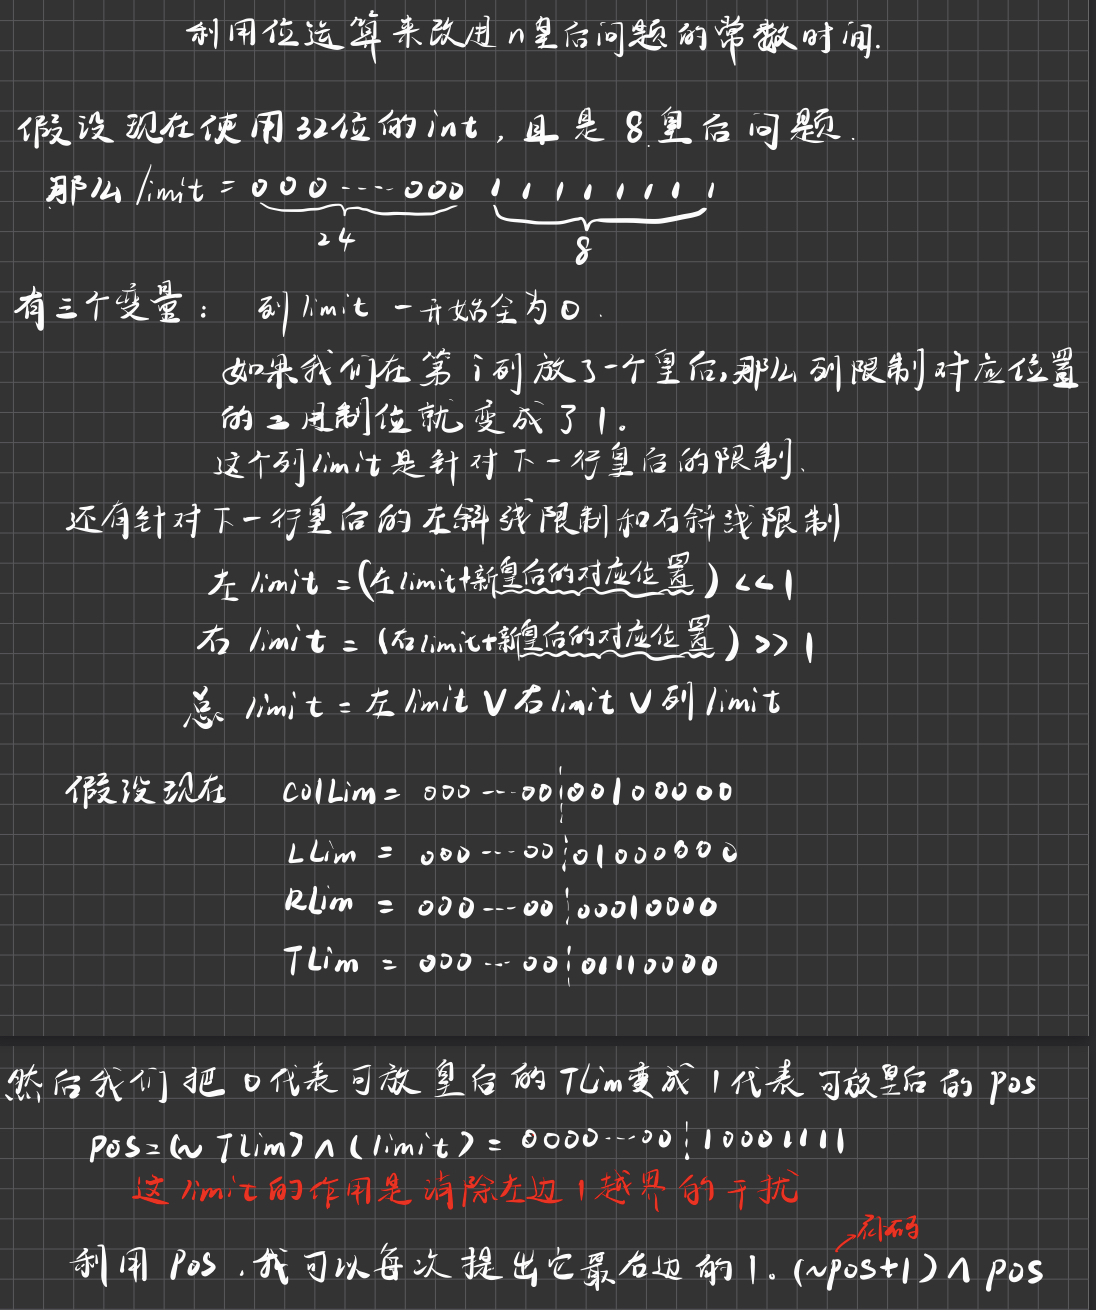 利用位运算来改进n皇后问题的常数时间.
假设现在使用32位的int，且是8皇后问题.
那么limit = 000----000 11111111
24 8
有三个变量： 列limit 一开始全为0.
如果我们在第i列放了一个皇后,那么列限制对应位置
的二进制位就变成了1。
这个列limit是针对下一行皇后的限制.
还有针对下一行皇后的左斜线限制和右斜线限制
左limit =(左limit+新皇后的对应位置) <<1
右limit = (右limit+新皇后的对应位置) >> 1
总limit = 左limit ∨ 右limit ∨ 列limit
假设现在 colLim= 000----00|00100000
LLim = 000----00|01000000
RLim = 000---00|00010000
TLim = 000---00|01110000
然后我们把0代表可放皇后的TLim变成1代表可放皇后的pos
pos=(~TLim)∧(limit)= 0000----00|10001111
这limit的作用是消除左边1越界的干扰
补码
利用pos,我可以每次提出它最右边的1。(~pos+1)∧pos